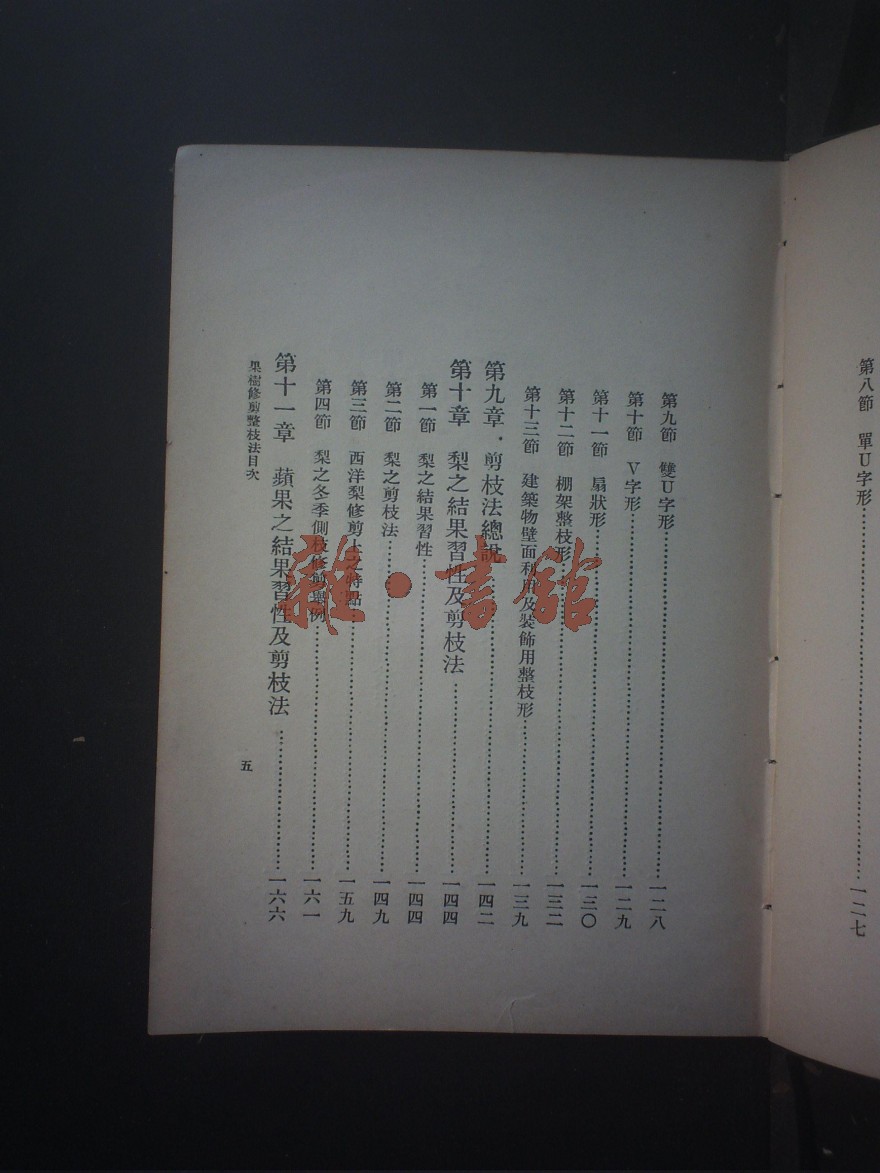 第八節　單U字形……一二七
第九節　雙U字形……一二八
第十節　V字形……一二九
第十一節　扇狀形……一三〇
第十二節　棚架整枝形……一三二
第十三節　建築物壁面利用及裝飾用整枝形……一三九
第九章　剪枝法總說……一四二
第十章　梨之結果習性及剪枝法……一四四
第一節　梨之結果習性……一四四
第二節　梨之剪枝法……一四九
第三節　西洋梨修剪上之特點……一五九
第四節　梨之冬季側枝修剪舉例……一六一
第十一章　蘋果之結果習性及剪枝法……一六六
果樹修剪整枝法目次
五
雜·書館